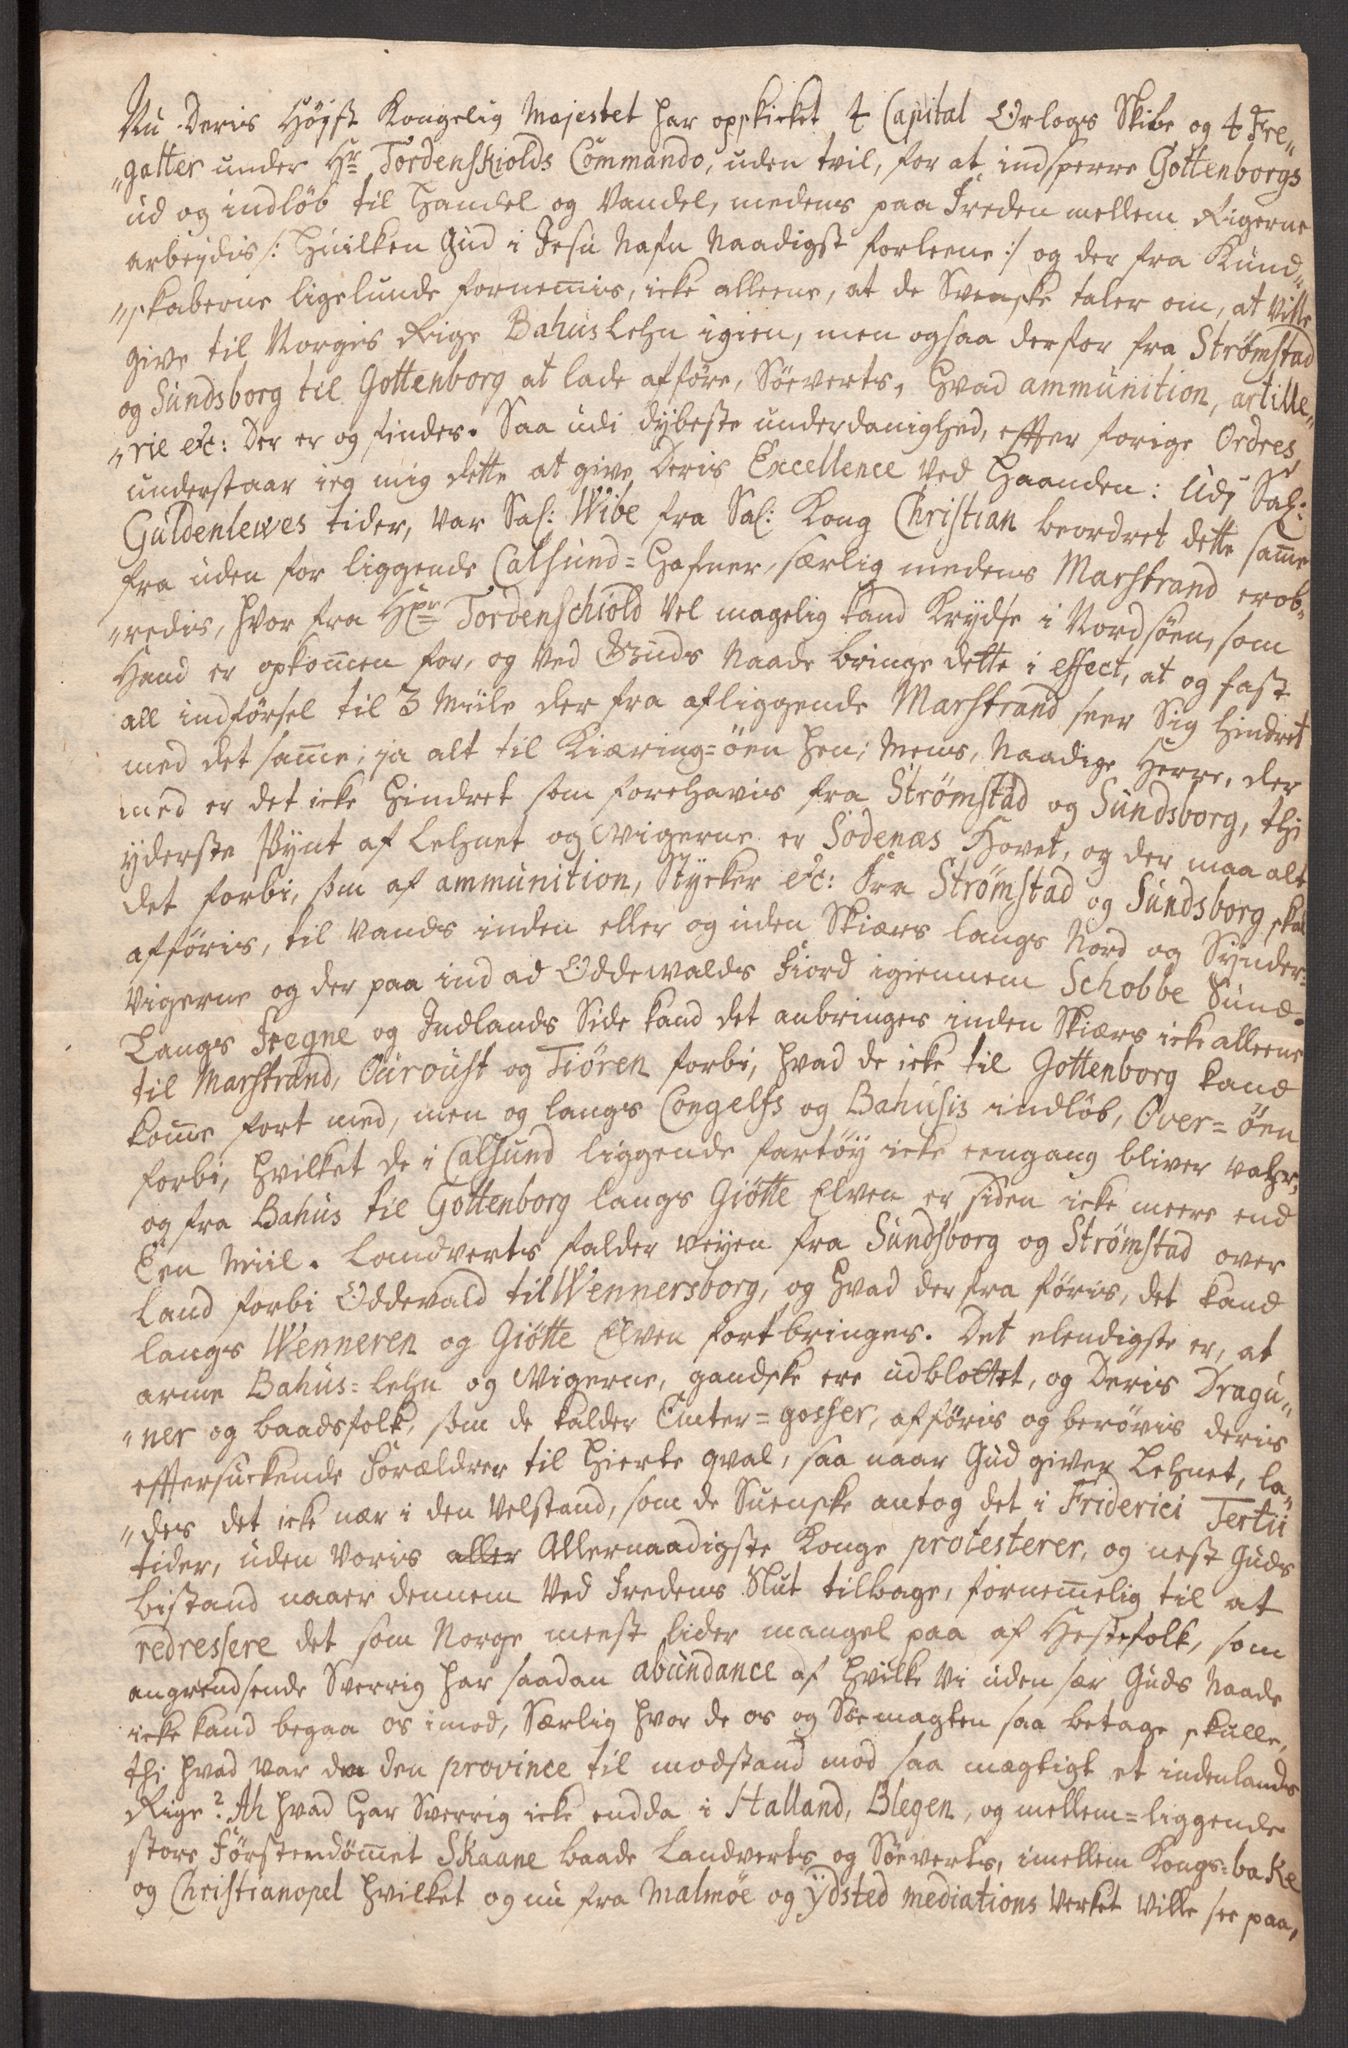 Nu Deris Høyst Kongelig Majestet har opskicket 4 Capital Orlogs Skibe og 4 Fre„
„gatter under Hr Tordenskiolds Commando, uden tvil, for at indsperre Gottenborgs
ud og indløb til Handel og Vandel, medens paa Freden mellem Rigerne
arbeydis /: Huilken Gud i Jesu Nafn Naadigst forleene :/ og der fra Kund„
„skaberne ligelunde fornemmis, icke alleene, at de Svenske taler om, at ville
give til Norgis Rige Bahus Lehn igien, men ogsaa derfor fra Strømstad
og Sundsborg til Gottenborg at lade afføre, Söeverts, hvad ammunition, artille„
„rie etc: der er og findes. Saa udi dybeste underdanighed, effter forige Ordres,
understaar ieg mig dette at give Deris Excellence ved Haanden: Udi Sal:
Guldenlewes tider, var Sal: Wibe fra Sal: Kong Christian beordret dette samme
fra uden for liggende Calsund=Hafner, særlig medens Marstrand erob„
„redis, hvor fra Hr Tordenschiold vel magelig kand Krydse i Nordsöen, som
Hand er opkommen for, og ved Guds Naade bringe dette i effect, at og fast
all indförsel til 3 Miile der fra afliggende Marstrand seer Sig hindret
med det samme; ja alt til Kiæring=öen hen; Mens, Naadige Herre, der
med er det icke hindret som forehavis fra Strømstad og Sundsborg, thi
yderste Pynt af Lehnet og Wigerne er Sodenæs Hovet, og der maa alt
det forbi, som af ammunition, Stycker etc: fra Strømstad og Sundsborg skal
afføris, til vands inden eller og uden Skiærs langs Nord og Synder=
Vigerne og der paa ind ad Oddewalds Fiord igiennem Schobbe Sund.
Langs Fregne og Indlands Side kand det anbringes inden Skiærs icke alleene
til Marstrand, Ouroust og Tiören forbi, hvad de icke til Gottenborg kand
komme fort med, men og langs Congelfs og Bahusis indløb, Over=öen
forbi, hvilket de i Calsund liggende fartöy icke eengang bliver vahr,
og fra Bahus til Gottenborg langs Giötte Elven er siden icke meere end
Een Miil. Landverts falder veyen fra Sundsborg og Strømstad over
Land forbi Oddevald til Wennersborg, og hvad der fra föris, det kand
langs Wenneren og Giötte Elven fortbringes. Det elendigste er, at
arme Bahus=Lehn og Wigerne, gandske ere udblottet, og Deris Dragu„
„ner og baadsfolk, som de kalder Enter=gosser, afföris og berövis deris
efftersuckende Forældrer til Hierte qval, saa naar Gud giver Lehnet, la„
„des det icke nær i den velstand, som de Suenske antog det i Friderici Tertii
tider, uden Voris aller Allernaadigste Konge protesterer, og nest Guds
bistand naaer dennem ved Fredens Slut tilbage, fornemmelig til at
redressere det som Norge meest lider mangel paa af Hestefolk, som
angrendsende Sverrig har saadan abundance af hvilke vi uden sær Guds Naade
icke kand begaa os imod, Særlig hvor de os og Söemagten saa betage skulle,
thi hvad var da den province til modstand mod saa mægtigt et indenlands
Rige? Ah hvad har Sverrig icke endda i Halland, Blegen, og mellem=liggende
store Förstendömmet Skaane baade Landverts og Söeverts, imellem Kongs=bake
og Christianopel hvilket og nu fra Malmöe og Ydsted mediations verket ville see paa,